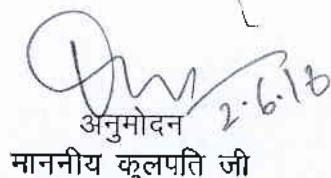 2.6.18
अनुमोदन
माननीय कुलपति जी